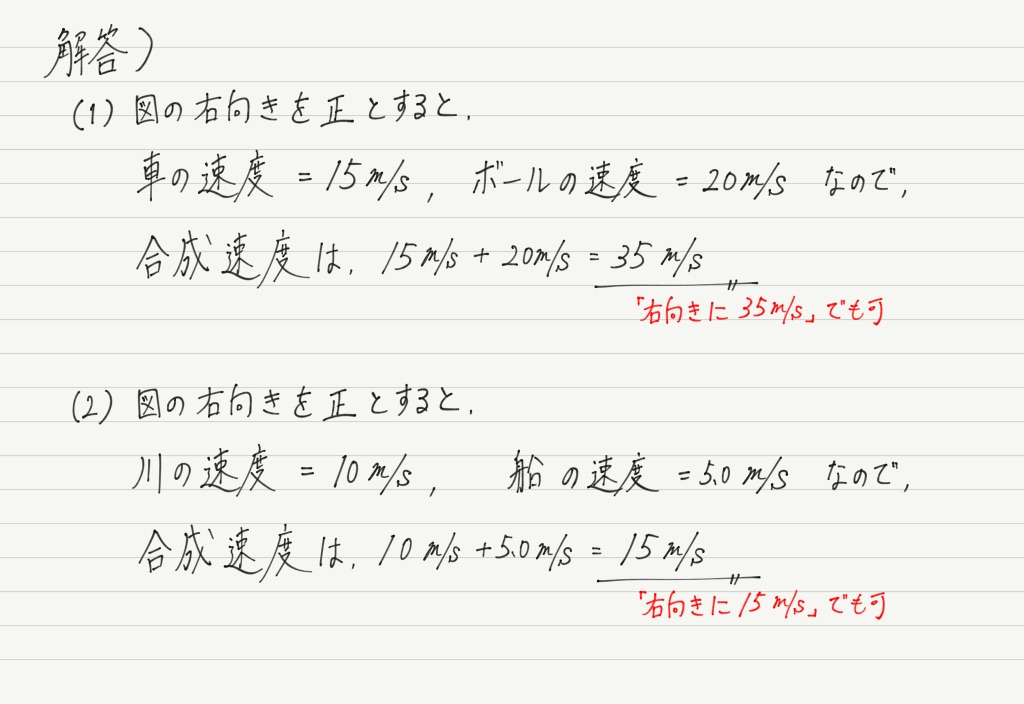 解答)
(1) 図の右向きを正とすると,
車の速度 = 15m/s, ボールの速度 = 20m/s なので,
合成速度は, 15m/s + 20m/s = 35 m/s
「右向きに 35m/s」でも可
(2) 図の右向きを正とすると,
川の速度 = 10 m/s, 船の速度 = 5.0 m/s なので,
合成速度は, 10 m/s + 5.0 m/s = 15 m/s
「右向きに 15 m/s」でも可